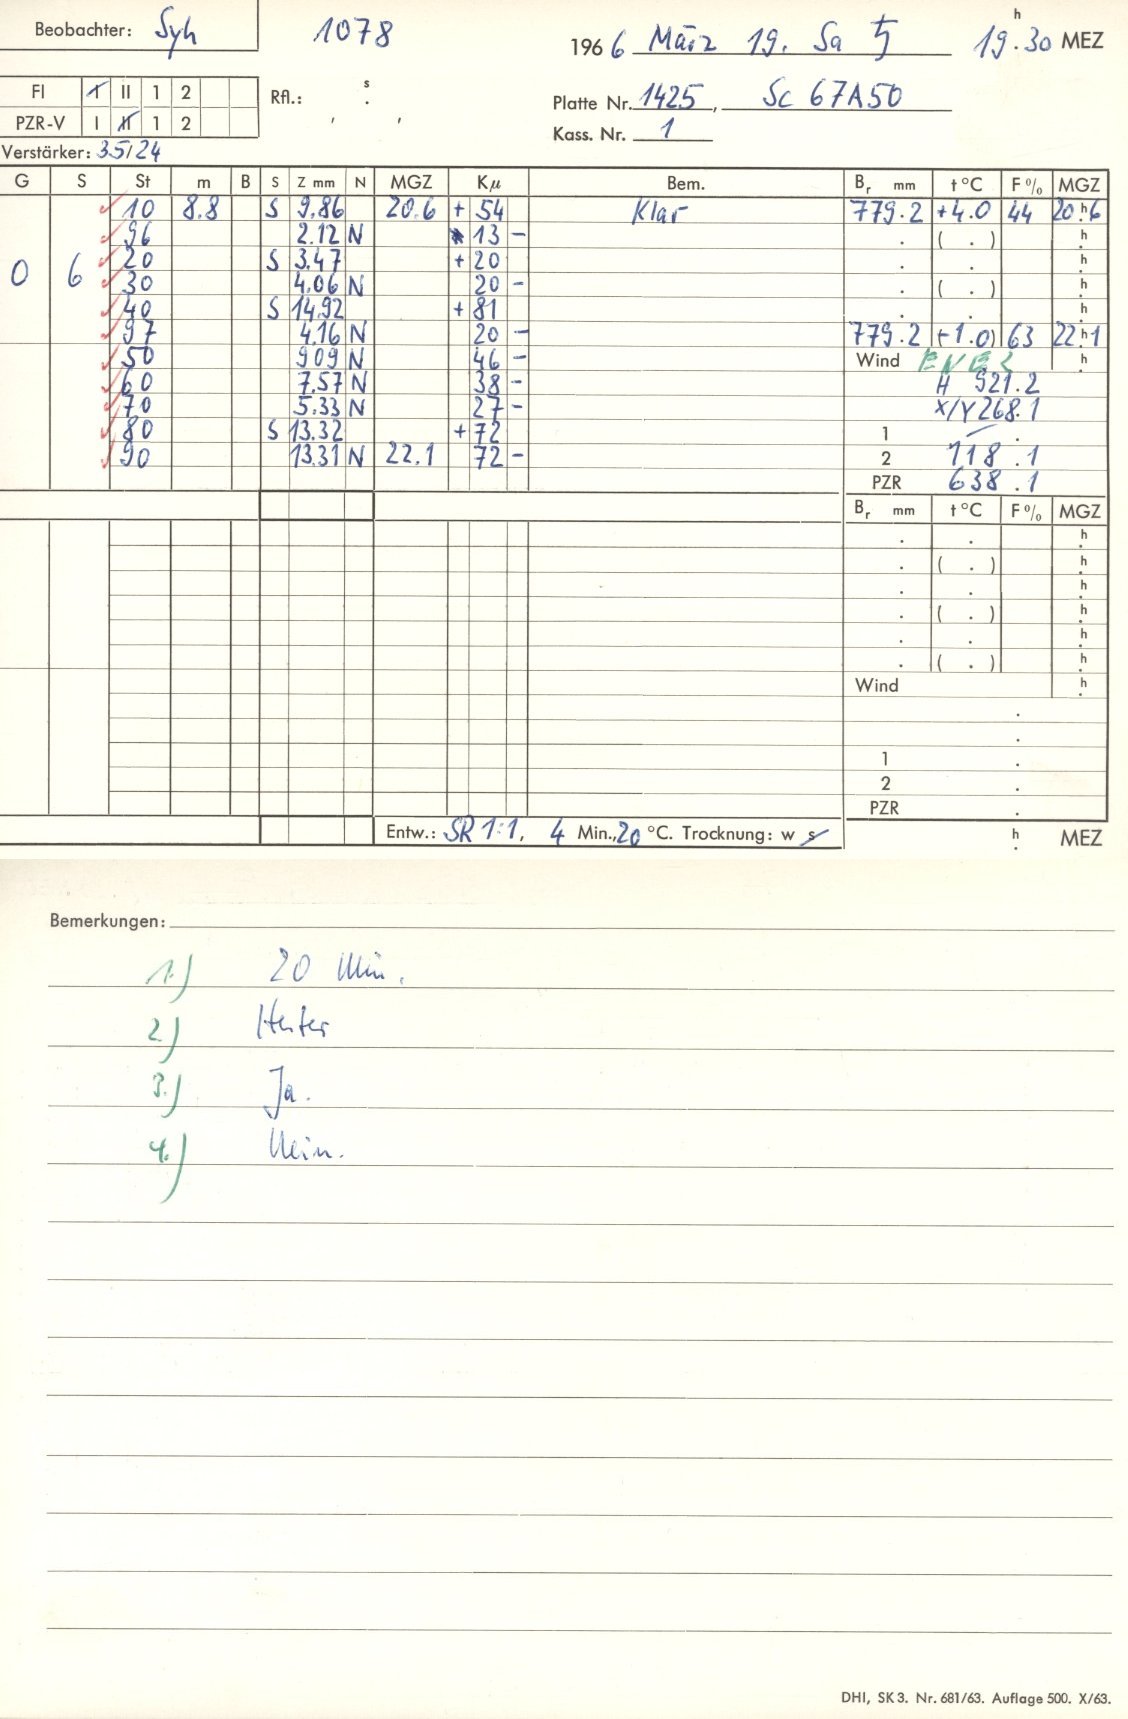 Beobachter: Syh
1078
1966 März 19. Sa ♄ 19h.30 MEZ
FI I II 1 2
Rfl.: s . , ,
Platte Nr. 1425, Sc 67A50
PZR-V I II 1 2
Kass. Nr. 1
Verstärker: 35/24
G S St m B S Z mm N MGZ Kμ Bem. Br mm t °C F % MGZ
10 8.8 S 9.86 20.6 + 54 Klar 779.2 +4.0 44 20h.6
96 2.12 N 13 - . ( . ) h.
0 6 20 S 3.47 + 20 . . h.
30 4.06 N 20 - . ( . ) h.
40 S 14.92 + 81 . . h.
97 4.16 N 20 - 779.2 (-1.0) 63 22h.1
50 909 N 46 - Wind ENE2 h.
60 7.57 N 38 - H 921.2
70 5.33 N 27 - X/Y 268.1
80 S 13.32 + 72 1 — .
90 13.31 N 22.1 72 - 2 118.1
PZR 638.1
Br mm t °C F % MGZ
. . h.
. ( . ) h.
. . h.
. ( . ) h.
. . h.
. ( . ) h.
Wind h.
.
.
1 .
2 .
PZR .
Entw.: SR 1:1, 4 Min., 20 °C. Trocknung: w s
h. MEZ
Bemerkungen:
1.) 20 Min.
2.) Heiter
3.) Ja.
4.) Nein.
DHI, SK 3. Nr. 681/63. Auflage 500. X/63.